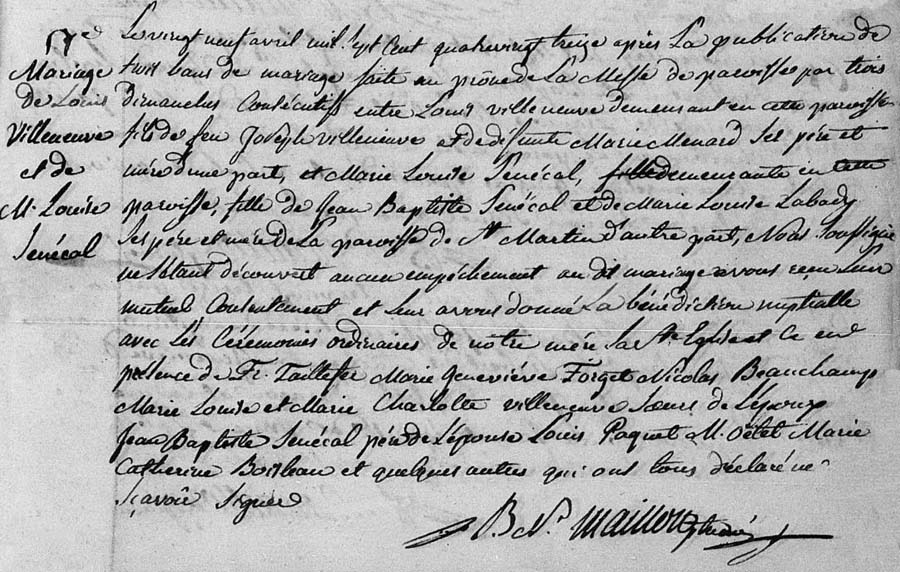 Mariage
de Louis
Villeneuve
et de
M. Louise
Senécal
Le vingt neuf avril mil sept cent quatrevingt treize après La publication de
trois bans de mariage faite au prône de La Messe de paroisse par trois
dimanches Consécutifs entre Louis villeneuve demeurant en cette paroisse
fils de feu Joseph villeneuve et de défunte Marie Menard Ses père et
mère d'une part, et Marie Louise Senécal, fille demeurante en cette
paroisse, fille de Jean Baptiste Senécal et de Marie Louise Labady
Ses père et mère de La paroisse de St Martin d'autre part, Nous Soussigné
ne s'étant découvert aucun empêchement au dit mariage avons reçu Leur
mutuel Consentement et Leur avons donné La bénédiction nuptialle
avec Les Cérémonies ordinaires de notre mère la Ste Eglise et Ce en
présence de Fr. Taillefer Marie Geneviève Forget Nicolas Beauchamp
Marie Louise et Marie Charlotte villeneuve Soeurs de L'époux
Jean Baptiste Senécal père de L'épouse Louis Paquet M. Marie
Catherine Boileau et quelques autres qui ont tous déclaré ne
Sçavoir Signer
B. Ns. Mailloux